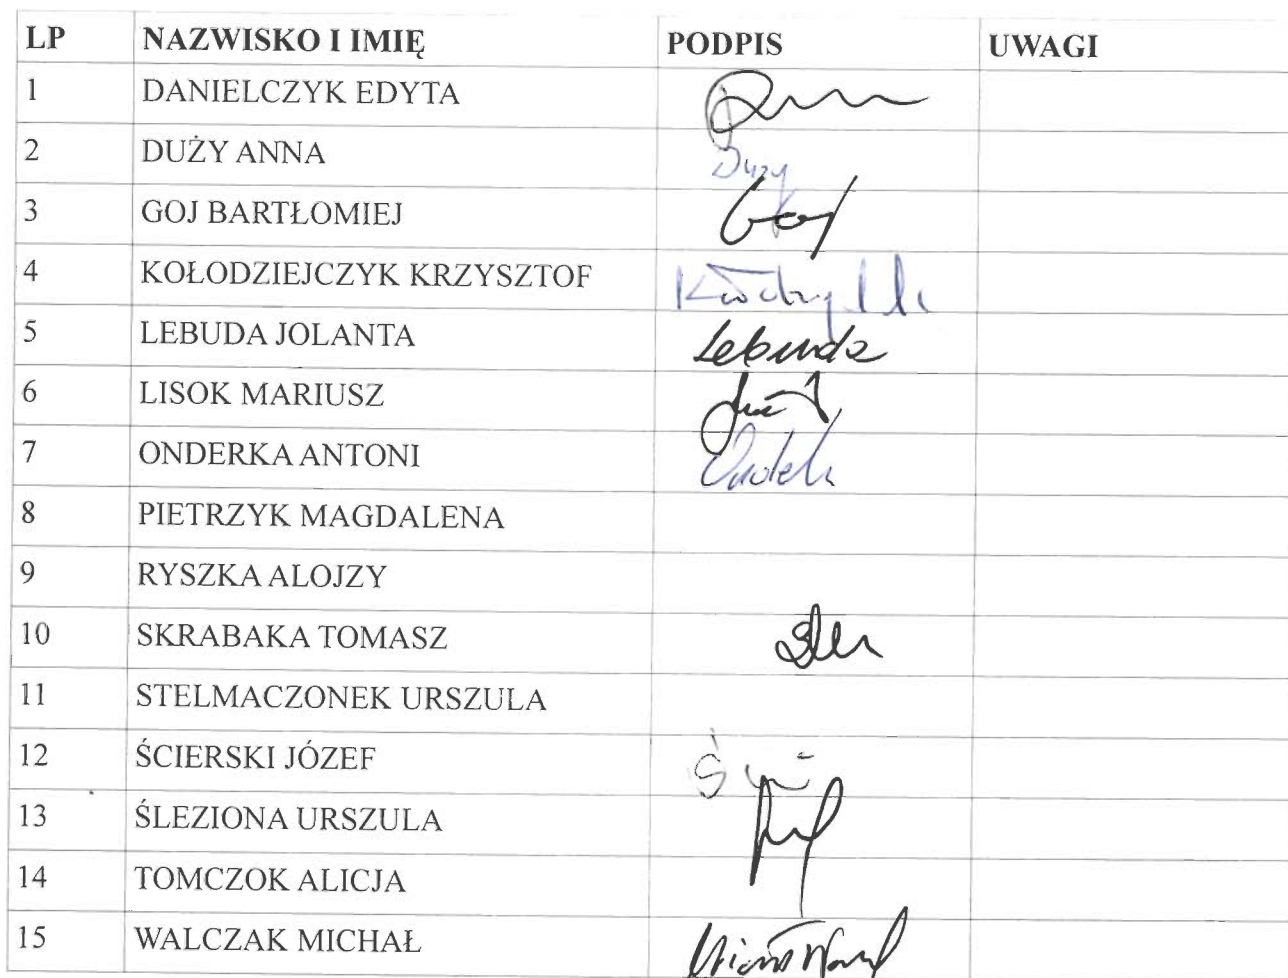 LP NAZWISKO I IMIĘ PODPIS UWAGI
1 DANIELCZYK EDYTA
2 DUŻY ANNA Duży
3 GOJ BARTŁOMIEJ Goj
4 KOŁODZIEJCZYK KRZYSZTOF
5 LEBUDA JOLANTA Lebuda
6 LISOK MARIUSZ
7 ONDERKA ANTONI
8 PIETRZYK MAGDALENA
9 RYSZKA ALOJZY
10 SKRABAKA TOMASZ
11 STELMACZONEK URSZULA
12 ŚCIERSKI JÓZEF
13 ŚLEZIONA URSZULA
14 TOMCZOK ALICJA
15 WALCZAK MICHAŁ